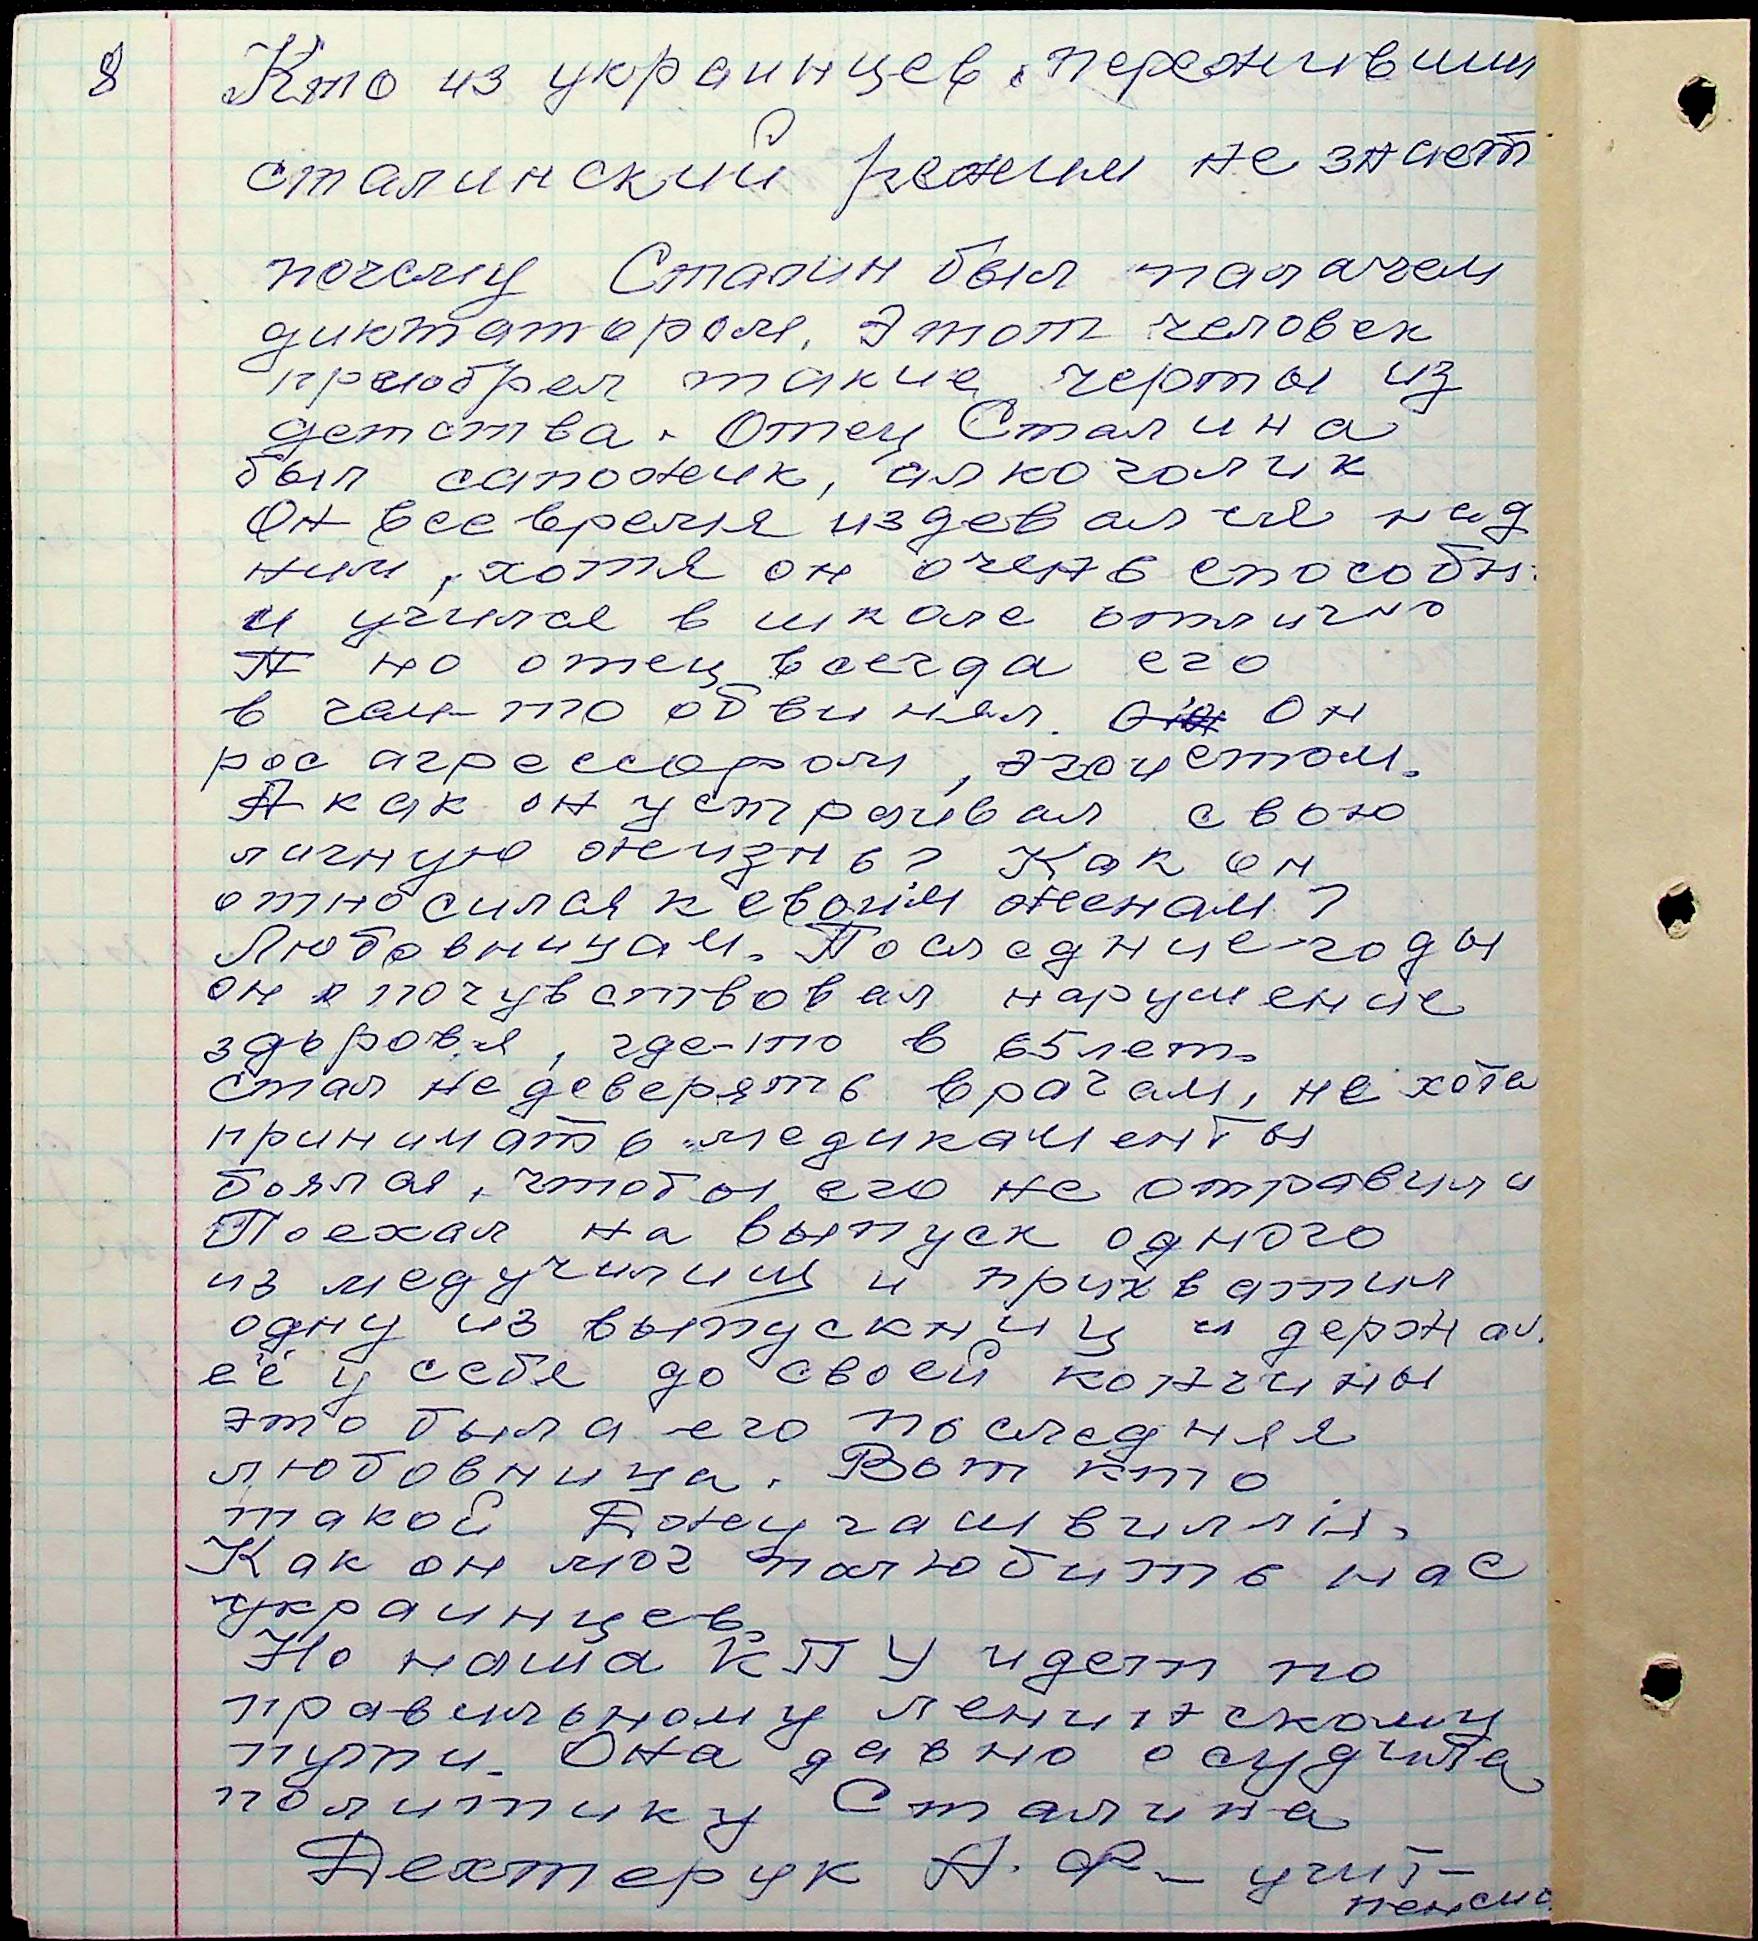 8
Кто из украинцев, переживших
сталинский режим не знает
почему Сталин был палачем
диктатором. Этот человек
преюбрел такие черты из
детства. Отец Сталина
был сапожник, алкоголик
Он все время издевался над
ним, хотя он очень способн.
и учился в школе отлично
но отец всегда его
в чем-то обвинял. Он
рос агрессором, эгоистом.
А как он устраивал свою
личную жизнь? Как он
относился к своим женам?
Любовницам. Последние годы
он почувствовал нарушение
здоровья, где-то в 65 лет.
стал недоверять врачам, не хотел
принимать медикаменты
боялся, чтобы его не отравили
Поехал на выпуск одного
из медучилищ и прихватил
одну из выпускниц и держал
её у себя до своей кончины
это была его последняя
любовница. Вот кто
такой Джугашвиллі.
Как он мог полюбить нас
украинцев.
Но наша КПУ идет по
правильному ленинскому
пути. Она давно осудила
политику Сталина
Дехтерук А. Ф. – учит-
пенсио